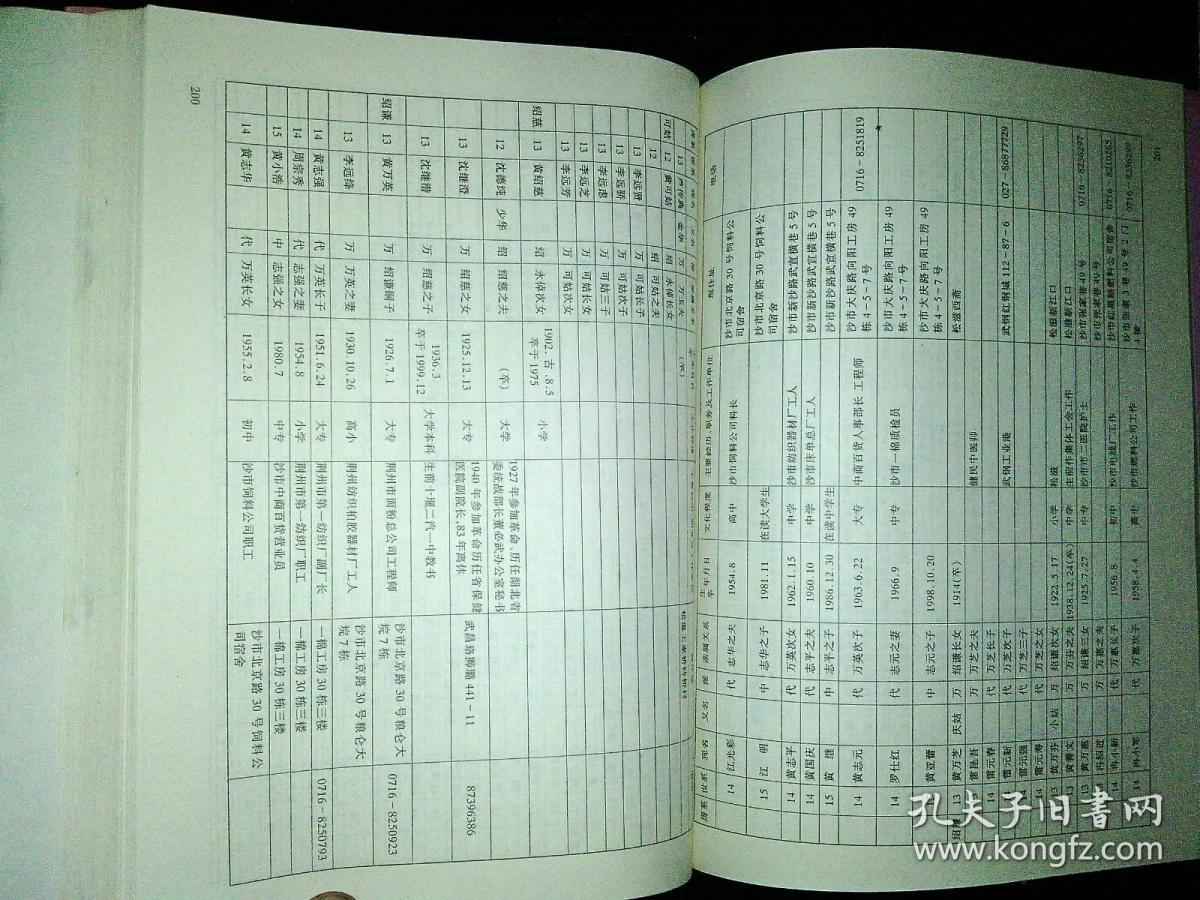 200
绍慈 13 黄绍慈 绍 永倬次女 1902.古.8.5 卒于1975 小学
12 沈德纯 少华 绍 绍慈之夫 (卒) 大学 1927年参加革命、历任湖北省委统战部长董必武办公室秘书
13 沈继澄 万 绍慈之女 1925.12.13 大专 1940年参加革命历任省保健医院副院长,83年离休 武昌珞狮路441-11 87396386
13 沈继潜 万 绍慈之子 1936.3 卒于1999.12 大学本科 生前十堰二汽一中教书
绍谦 13 黄万英 万 绍谦嗣子 1926.7.1 大专 荆州市面粉总公司工程师 沙市北京路30号粮仑大院7栋 0716-8250923
13 李远绛 万 万英之妻 1930.10.26 高小 荆州纺织柏胶器材厂工人 沙市北京路30号粮仑大院7栋
14 黄志强 代 万英长子 1951.6.24 大专 荆州市第一纺织厂副厂长 一棉工房30栋三楼 0716-8250793
14 周宗秀 代 志强之妻 1954.8 小学 荆州市第一纺织厂职工 一棉工房30栋三楼
15 黄小浩 中 志强之女 1980.7 中专 沙市中商百货营业员 一棉工房30栋三楼
14 黄志华 代 万英长女 1955.2.8 初中 沙市饲料公司职工 沙市北京路30号饲料公司宿舍
13 李远贤 万 可姑长子
13 李远骄 万 可姑次子
13 李远虑 万 可姑三子
13 李远芝 万 可姑长女
13 李远芳 万 可姑次女
201
房系 世系 姓名 又名 派 亲属关系 生年月日 卒年月日 文化程度 主要经历、职务及工作单位 现住址 电话
14 江光彩 代 志华之夫 1954.8 高中 沙市饲料公司科长 沙市北京路30号饲料公司宿舍
15 江明 中 志华之子 1981.11 在读大学生 沙市北京路30号饲料公司宿舍
14 黄志平 代 万英次女 1962.1.15 中学 沙市纺织器材厂工人 沙市新沙路武宣横巷5号
14 黄国庆 代 志平之夫 1960.10 中学 沙市床单总厂工人 沙市新沙路武宣横巷5号
15 黄继 中 志平之子 1986.12.30 在读中学生 沙市新沙路武宣横巷5号
14 黄志元 代 万英次子 1963.6.22 大专 中商百货人事部长 工程师 沙市大庆路向阳工房49栋4-5-7号 0716-8251819
14 罗仕红 代 志元之妻 1966.9 中专 沙市一棉质检员 沙市大庆路向阳工房49栋4-5-7号
黄亚蕾 中 志元之子 1998.10.20 沙市大庆路向阳工房49栋4-5-7号
13 黄万芝 庆姑 万 绍谦长女 1914(卒) 松滋西斋
13 雷昆吾 万 万芝之夫 健民中医师
14 雷元春 代 万芝长子
14 雷元新 代 万芝次子 武钢工业港 武钢红钢城112-87-6 027-86877729
14 雷元强 代 万芝三子
14 雷元寿 代 万芝之女
13 黄万芬 小姑 万 绍谦次女 1922.5.17 小学 松滋 松滋新江口
13 万 万芬之夫 1938.12.24(卒) 中学 生前作集体工会工作 松滋新江口
13 黄万惠 万 绍谦三女 1925.7.27 中专 沙市市二医院护士 沙市张家巷49号 0716-8236297
13 冉绍进 万 万惠之夫 沙市张家巷49号
14 冉小新 代 万惠长子 1956.8 初中 沙市电线厂工作 0716-8210265
14 冉小军 代 万惠次子 1958.4.4 高中 沙市燃料公司工作
孔夫子旧书网
www.kongfz.com